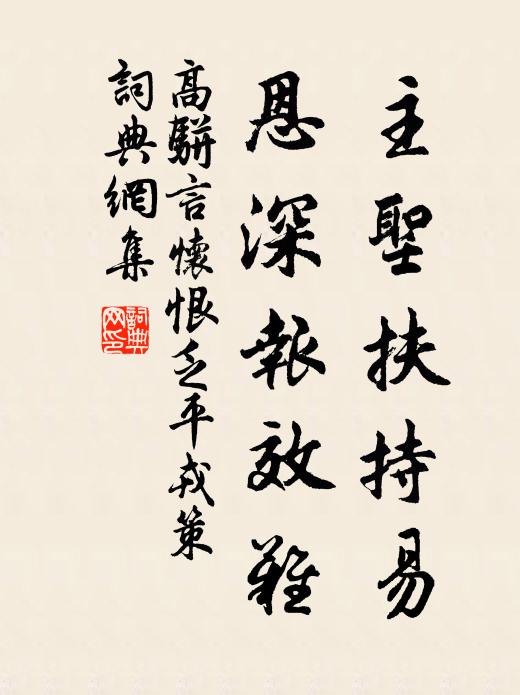 主聖扶持易
恩深報效難
高駢言懷恨乏平戎策
詞典網集
詞典網印